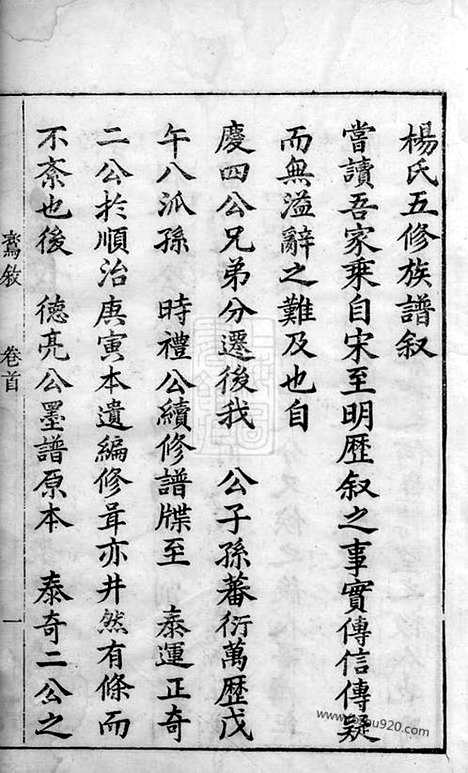 楊氏五修族譜叙
嘗讀吾家乘自宋至明歷叙之事實傳信傳疑
而無溢辭之難及也自
慶四公兄弟分遷後我 公子孫蕃衍萬歷戊
午八派孫 時禮公續修譜牒至 泰運正奇
二公於順治庚寅本遺編修葺亦井然有條而
不紊也後 德亮公墨譜原本 泰奇二公之
卷首
一